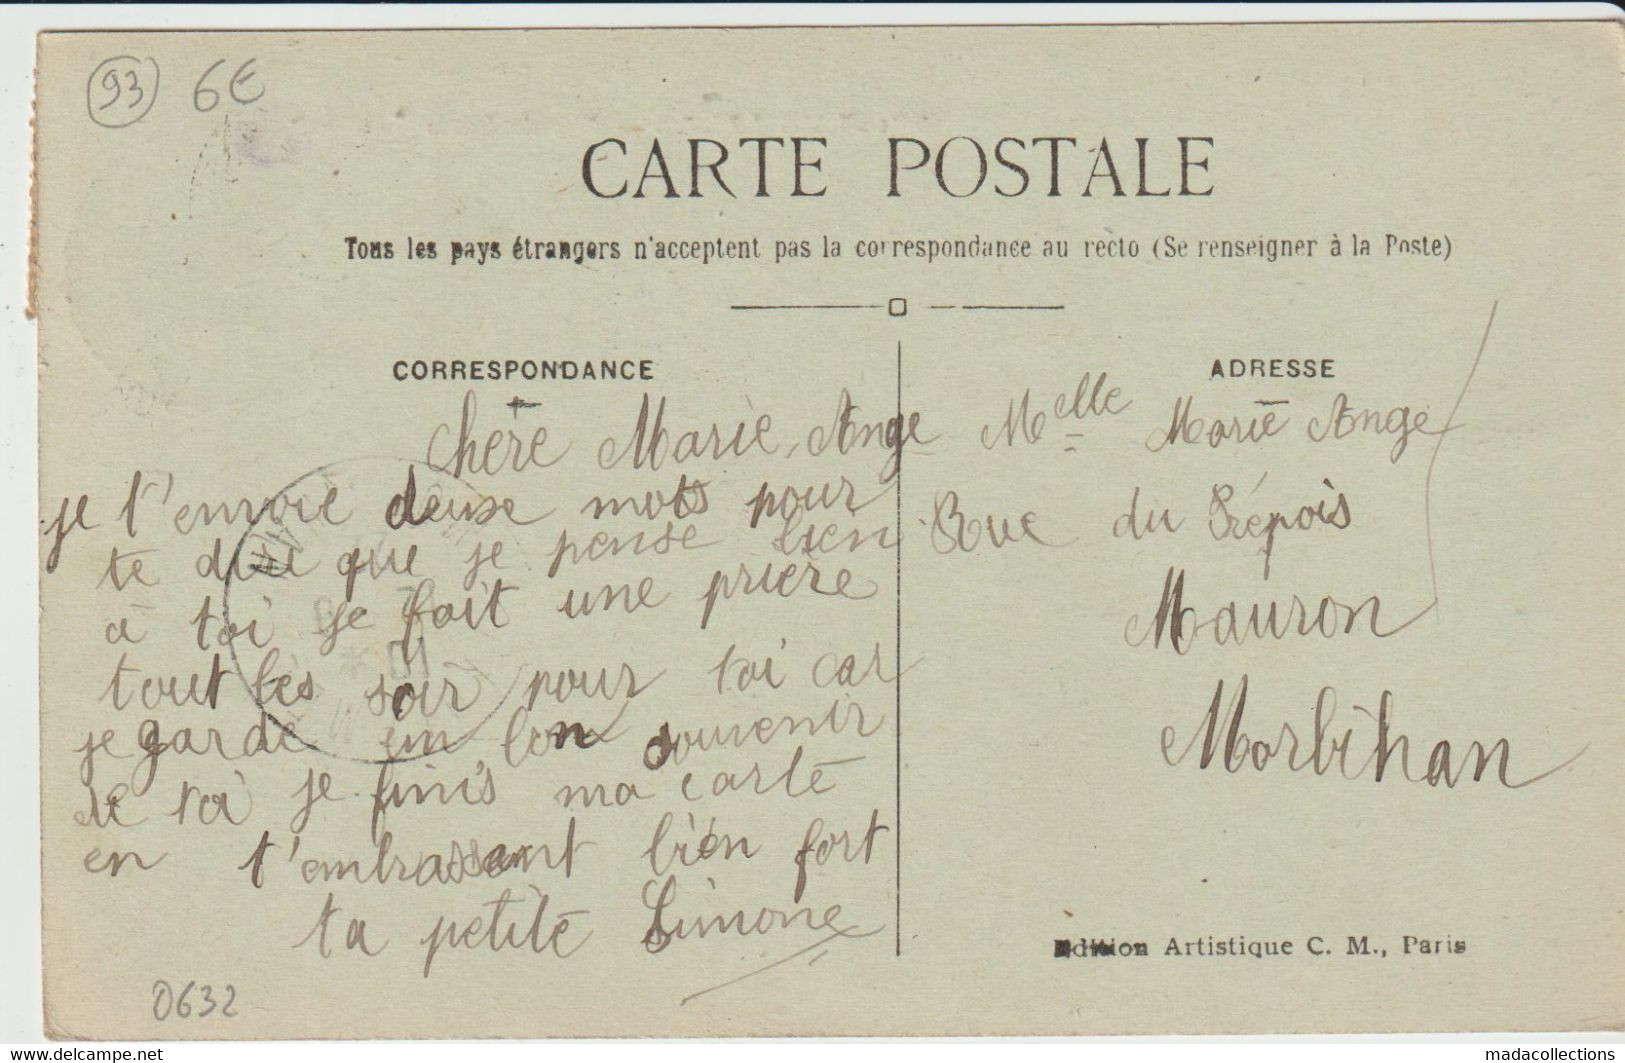 93 6E
CARTE POSTALE
Tous les pays étrangers n'acceptent pas la correspondance au recto (Se renseigner à la Poste)
CORRESPONDANCE
chère Marie, Ange
je t'envoie deuse mots pour
te dire que je pense bien
à toi je fait une prière
tout les soir pour toi car
je garde un bon souvenir
de toi je finis ma carte
en t'embrassent bien fort
ta petite Simone
ADRESSE
Melle Marie Ange
Rue du Prépois
Mauron
Morbihan
Edition Artistique C. M., Paris
0632
https://www.delcampe.net
madacollections